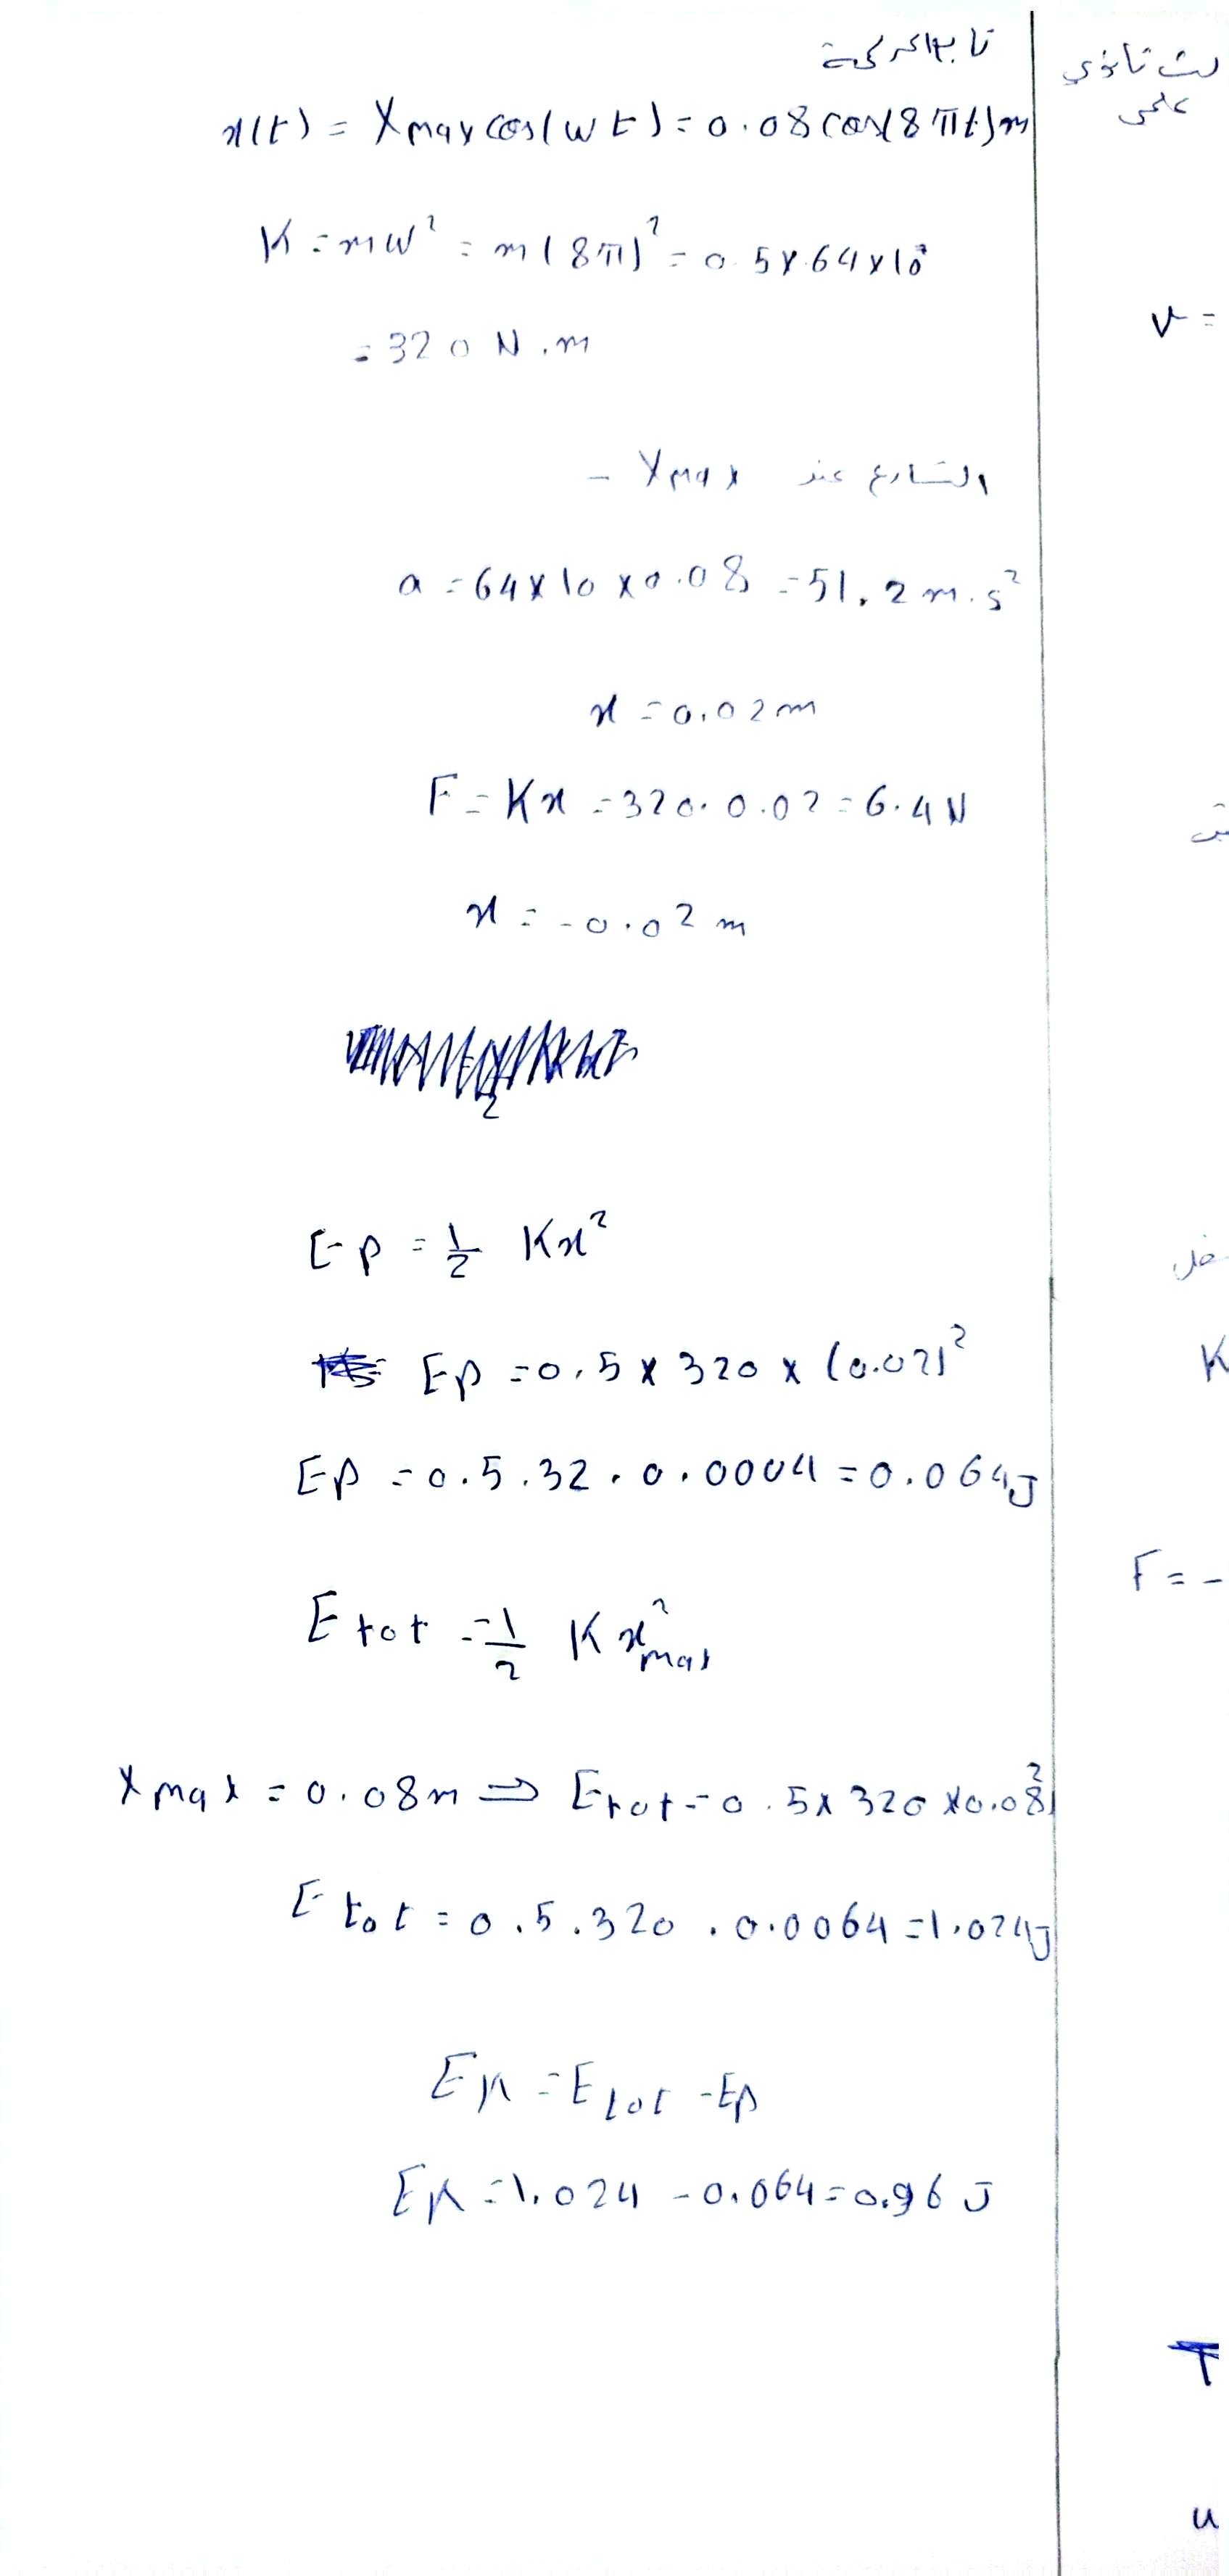 تابع الحركة
x(t) = Xmax cos(wt) = 0.08 cos(8πt) m
K = mw² = m(8π)² = 0.5 × 64 × 10
= 320 N.m
التسارع عند Xmax -
a = 64 × 10 × 0.08 = 51.2 m.s²
x = 0.02 m
F = Kx = 320 . 0.02 = 6.4 N
x = -0.02 m
Ep = 1/2 Kx²
Ep = 0.5 × 320 × (0.02)²
Ep = 0.5 . 32 . 0.0004 = 0.064 J
Etot = 1/2 Kx²max
Xmax = 0.08 m ⇒ Etot = 0.5 × 320 × 0.08²
Etot = 0.5 . 320 . 0.0064 = 1.024 J
Ek = Etot - Ep
Ek = 1.024 - 0.064 = 0.96 J
ثانوي
علمي
v =
K
F = -
T
u